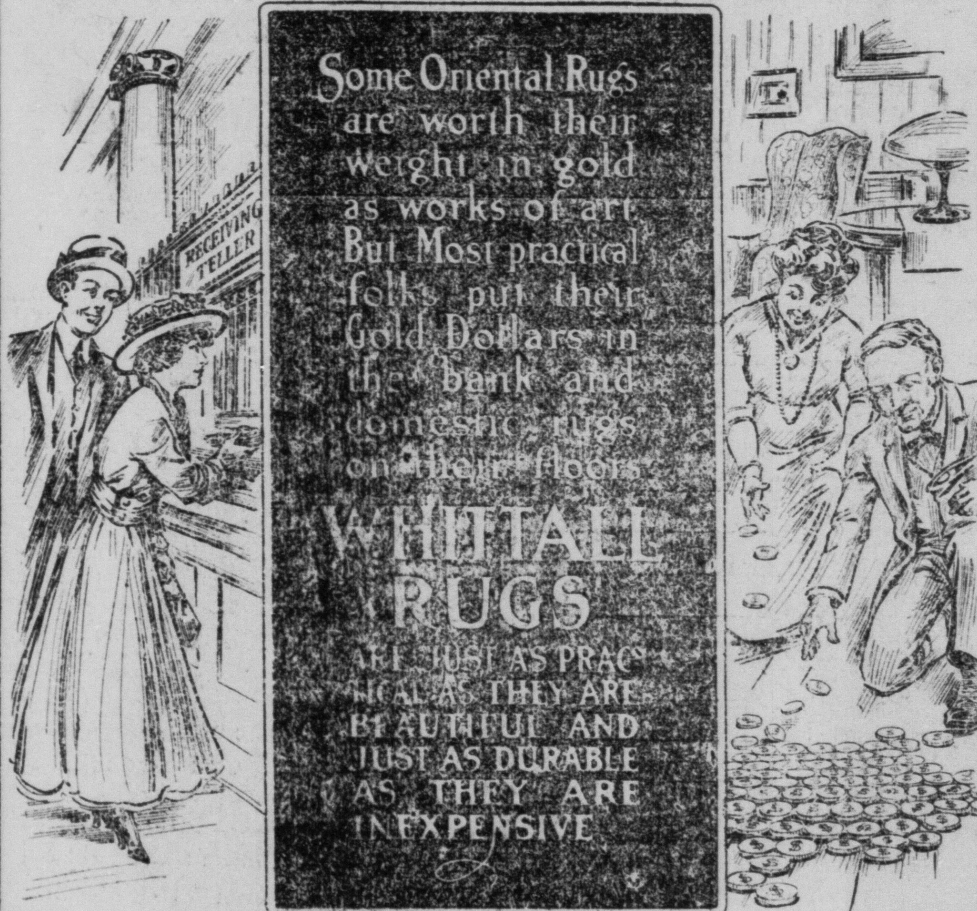 RECEIVING
TELLER
Some Oriental Rugs
are worth their
weight in gold
as works of art
But Most practical
folks put their
Gold Dollars in
the bank and
domestic rugs
on their floors
WHITTALL
RUGS
ARE JUST AS PRAC-
TICAL AS THEY ARE
BEAUTIFUL AND
JUST AS DURABLE
AS THEY ARE
INEXPENSIVE